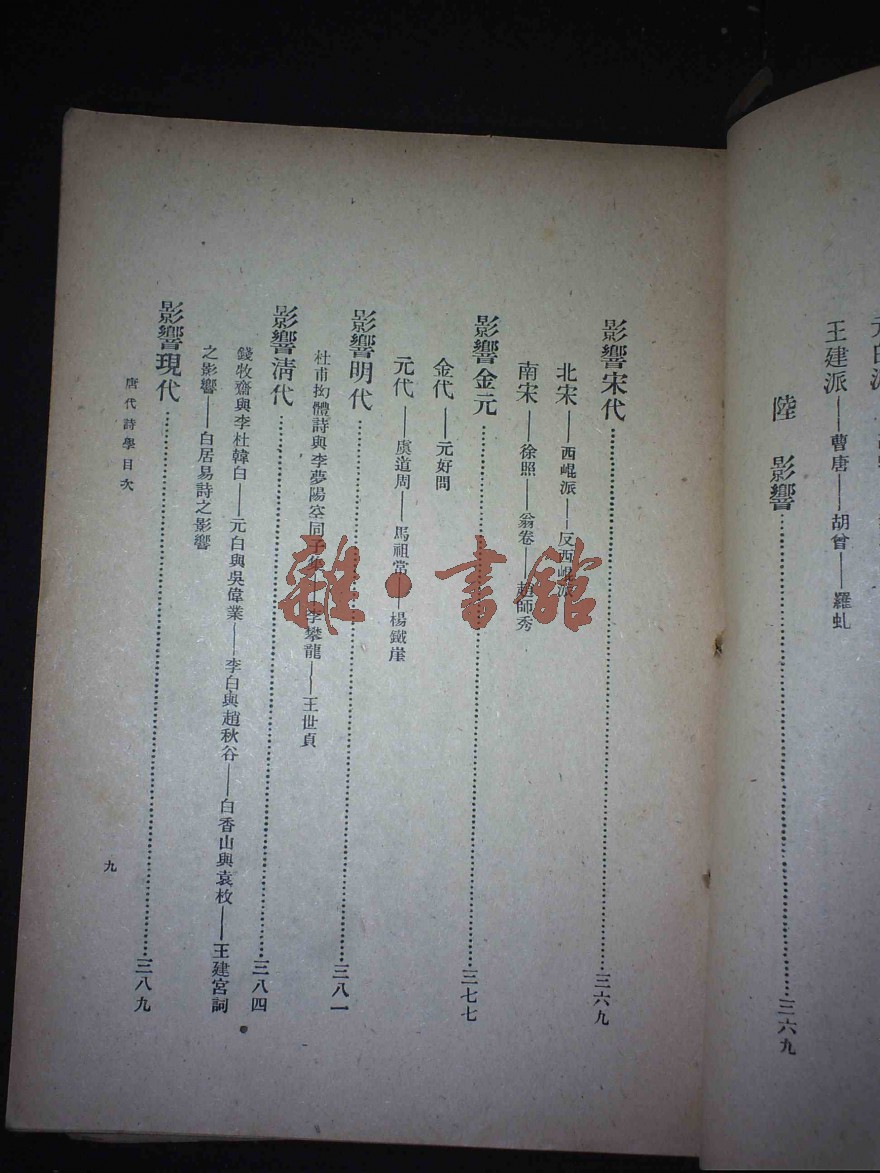 王建派——曹唐——胡曾——羅虬
陸 影響……三六九
影響宋代……三六九
北宋——西崐派——反西崐派
南宋——徐照——翁卷——趙師秀
影響金元……三七七
金代——元好問
元代——虞道周——馬祖常——楊鐵崖
影響明代……三八一
杜甫拗體詩與李夢陽空同子集——李攀龍——王世貞
影響淸代……三八四
錢牧齋與李杜韓白——元白與吳偉業——李白與趙秋谷——白香山與袁枚——王建宮詞
之影響——白居易詩之影響
影響現代……三八九
唐代詩學目次
九
雜·書館